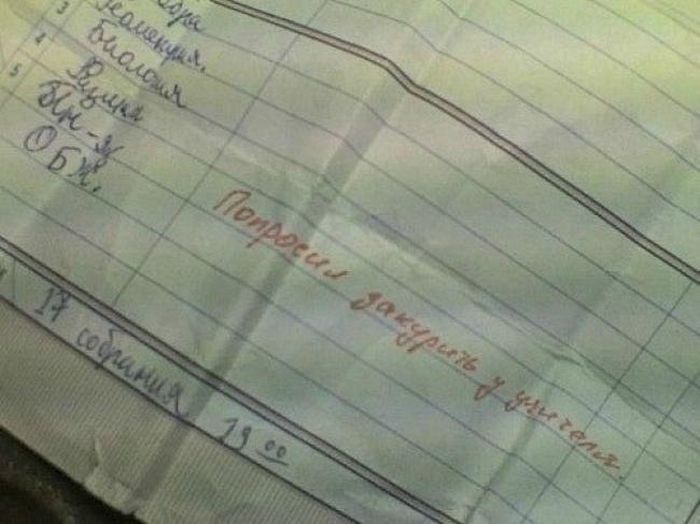 3
Геометрия.
4
Биология
5
Физика
Ин-яз
ОБЖ.
Попросил закурить у учителя.
17 собрания 19 00